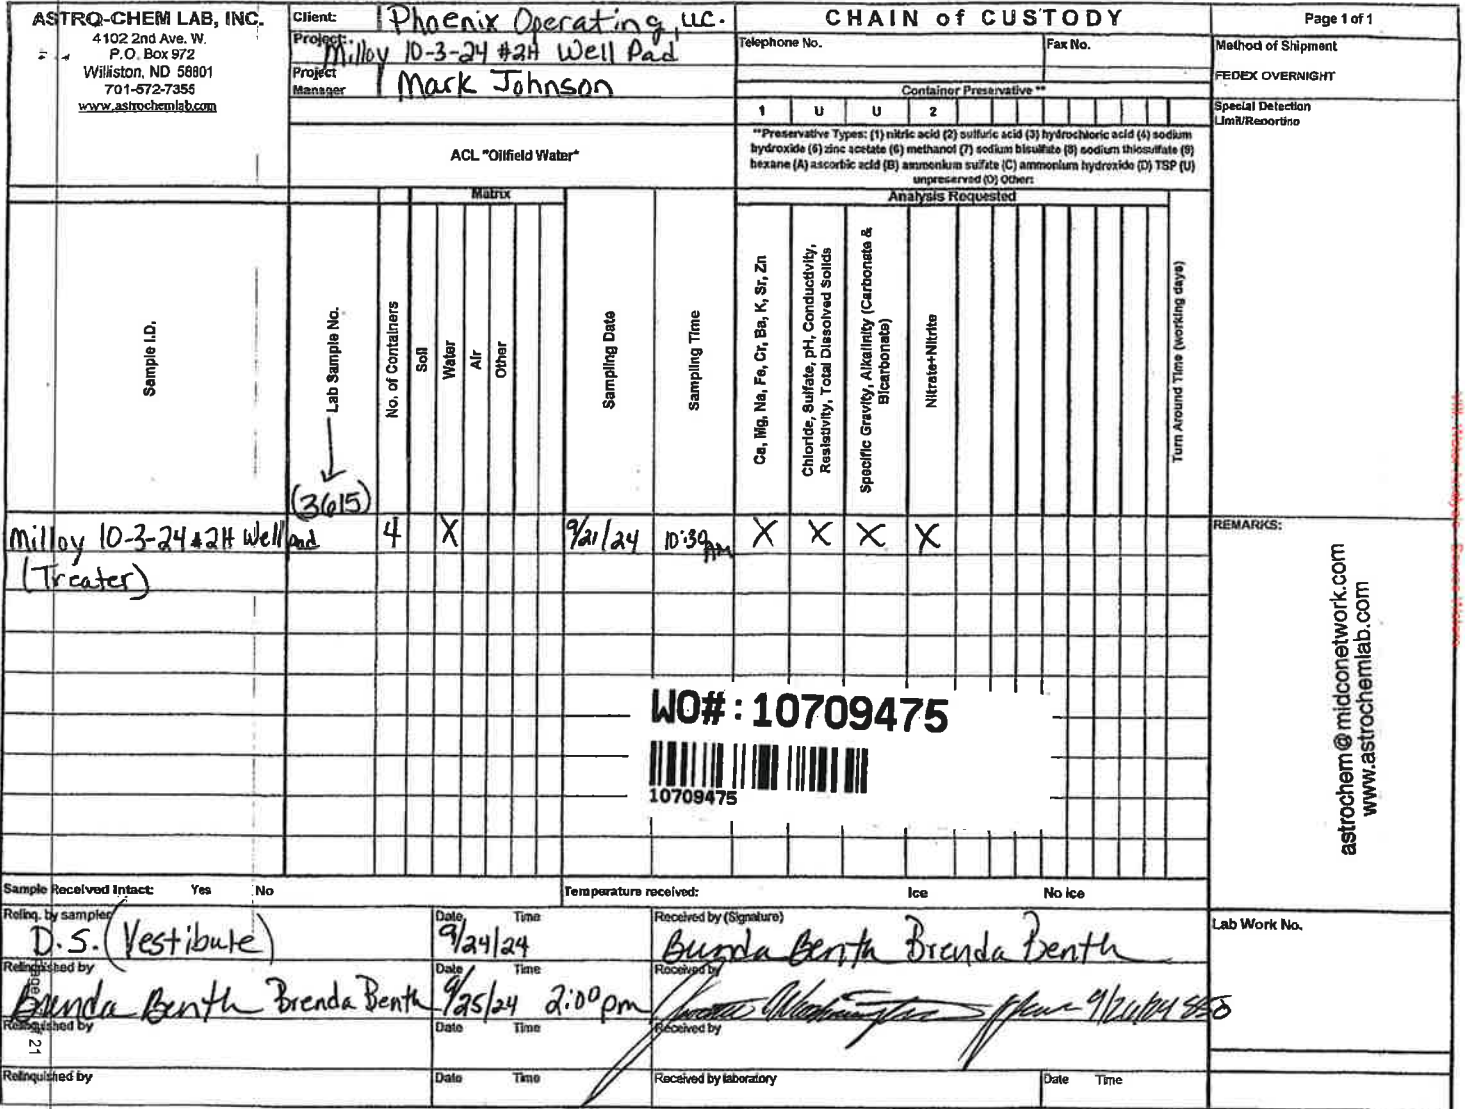 ASTRO-CHEM LAB, INC.
4102 2nd Ave. W.
P.O. Box 972
Williston, ND 58801
701-572-7355
www.astrochemlab.com
Client: Phoenix Operating, LLC.
Project: Milloy 10-3-24 #2H Well Pad
Project Manager Mark Johnson
ACL "Oilfield Water"
CHAIN of CUSTODY
Telephone No.
Fax No.
Container Preservative **
1 U U 2
**Preservative Types: (1) nitric acid (2) sulfuric acid (3) hydrochloric acid (4) sodium
hydroxide (5) zinc acetate (6) methanol (7) sodium bisulfate (8) sodium thiosulfate (9)
hexane (A) ascorbic acid (B) ammonium sulfate (C) ammonium hydroxide (D) TSP (U)
unpreserved (O) Other:
Page 1 of 1
Method of Shipment
FEDEX OVERNIGHT
Special Detection
Limit/Reporting
Matrix
Analysis Requested
Sample I.D.
Lab Sample No.
(3615)
No. of Containers
Soil
Water
Air
Other
Sampling Date
Sampling Time
Ca, Mg, Na, Fe, Cr, Ba, K, Sr, Zn
Chloride, Sulfate, pH, Conductivity,
Resistivity, Total Dissolved Solids
Specific Gravity, Alkalinity (Carbonate &
Bicarbonate)
Nitrate+Nitrite
Turn Around Time (working days)
Milloy 10-3-24 #2H Well Pad 4 X 9/21/24 10:30 AM X X X X
(Treater)
REMARKS:
astrochem@midconetwork.com
www.astrochemlab.com
WO#: 10709475
10709475
Sample Received Intact: Yes No
Temperature received: Ice No Ice
Relinq. by sampler
D.S. (Vestibule)
Date Time
9/24/24
Received by (Signature)
Brenda Benth Brenda Benth
Lab Work No.
Relinquished by
Brenda Benth Brenda Benth
Date Time
9/25/24 2:00 pm
Received by
9/26/24 850
Relinquished by
Date Time
Received by
Relinquished by
Date Time
Received by laboratory
Date Time
21